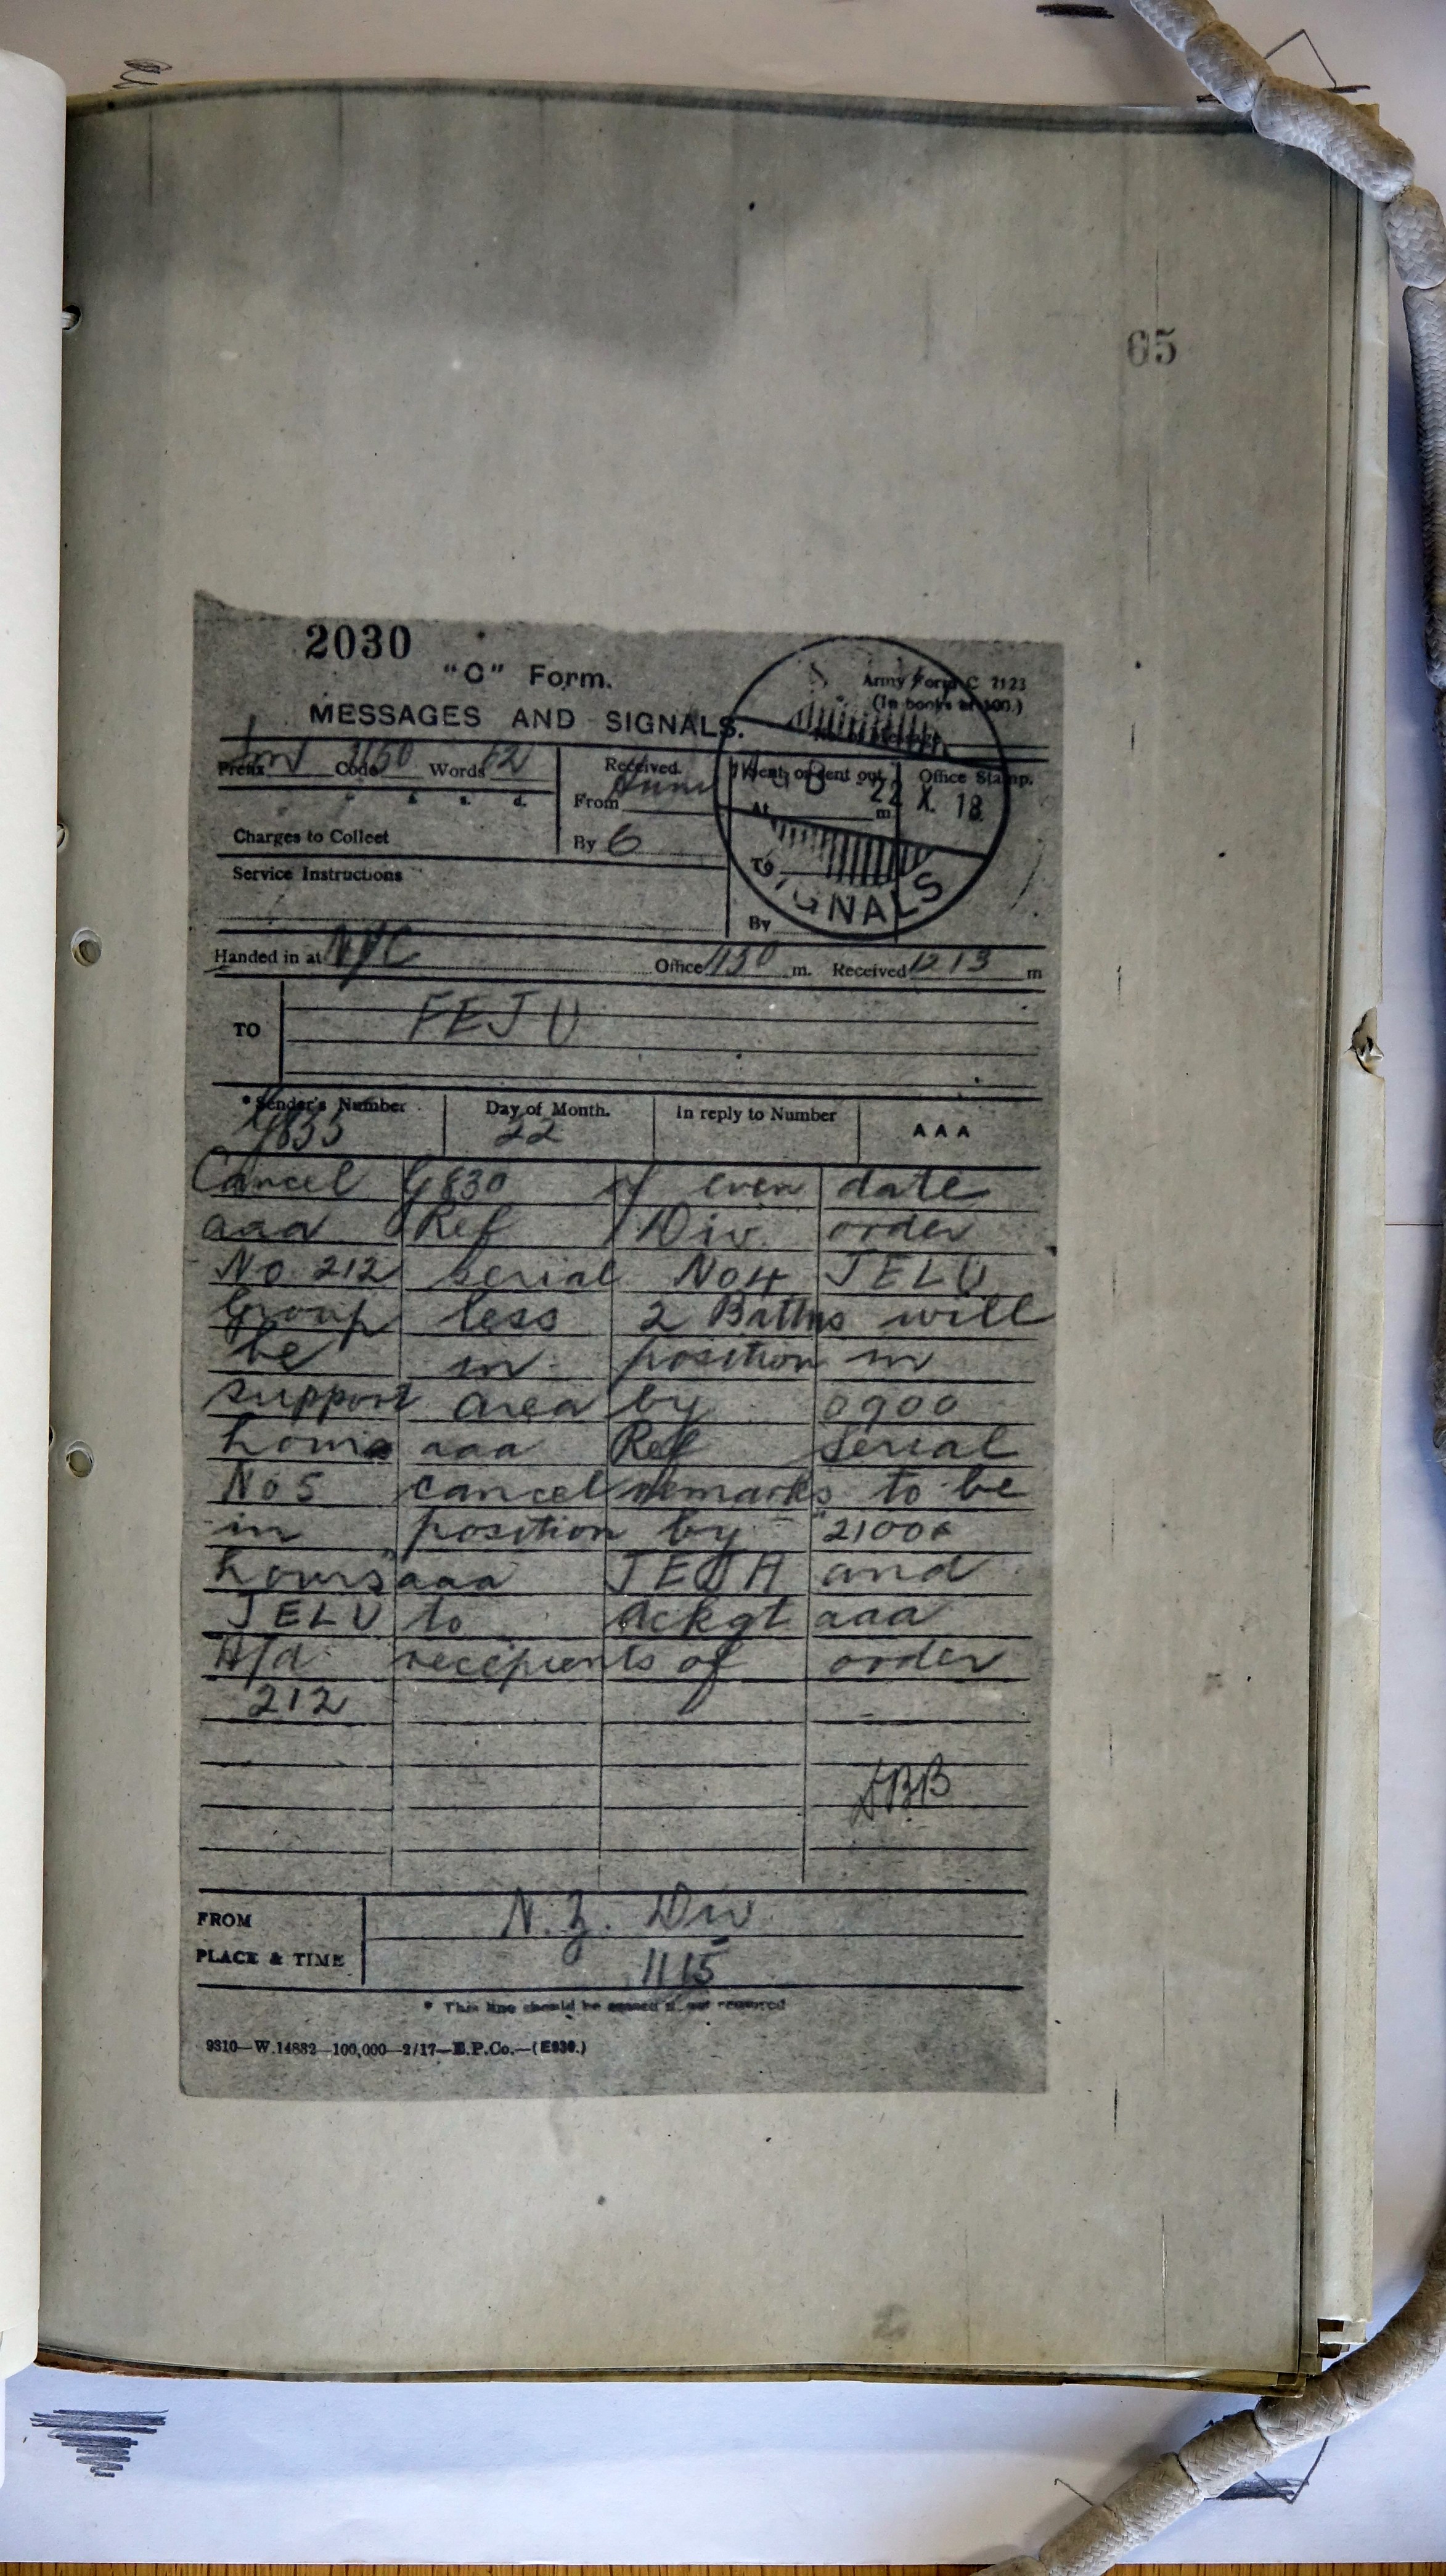 65
2030
"C" Form.
Army Form C 2123
(In books of 100.)
MESSAGES AND SIGNALS.
Prefix Sm Code 1150 Words 62
Received.
Sent, or sent out.
Office Stamp.
22 X. 18
From
At m
Charges to Collect
By 6
To
Service Instructions
SIGNALS
By
Handed in at NYC Office 1150 m. Received 1213 m
TO
FEJU
*Sender's Number
Day of Month.
In reply to Number
AAA
G835
22
Cancel G830 of even date
aaa Ref Div. order
No. 212 serial No 4 JELU
Group less 2 Battns will
be in position in
support area by 0900
hours aaa Ref serial
No 5 cancel remarks to be
in position by "2100
hours" aaa JEJA and
JELU to Ackgt aaa
A/d recipients of order
212
FROM
N.Z. Div
PLACE & TIME
1115
* This line should be erased if not required
9310—W.14882—100,000—2/17—E.P.Co.—(E939.)